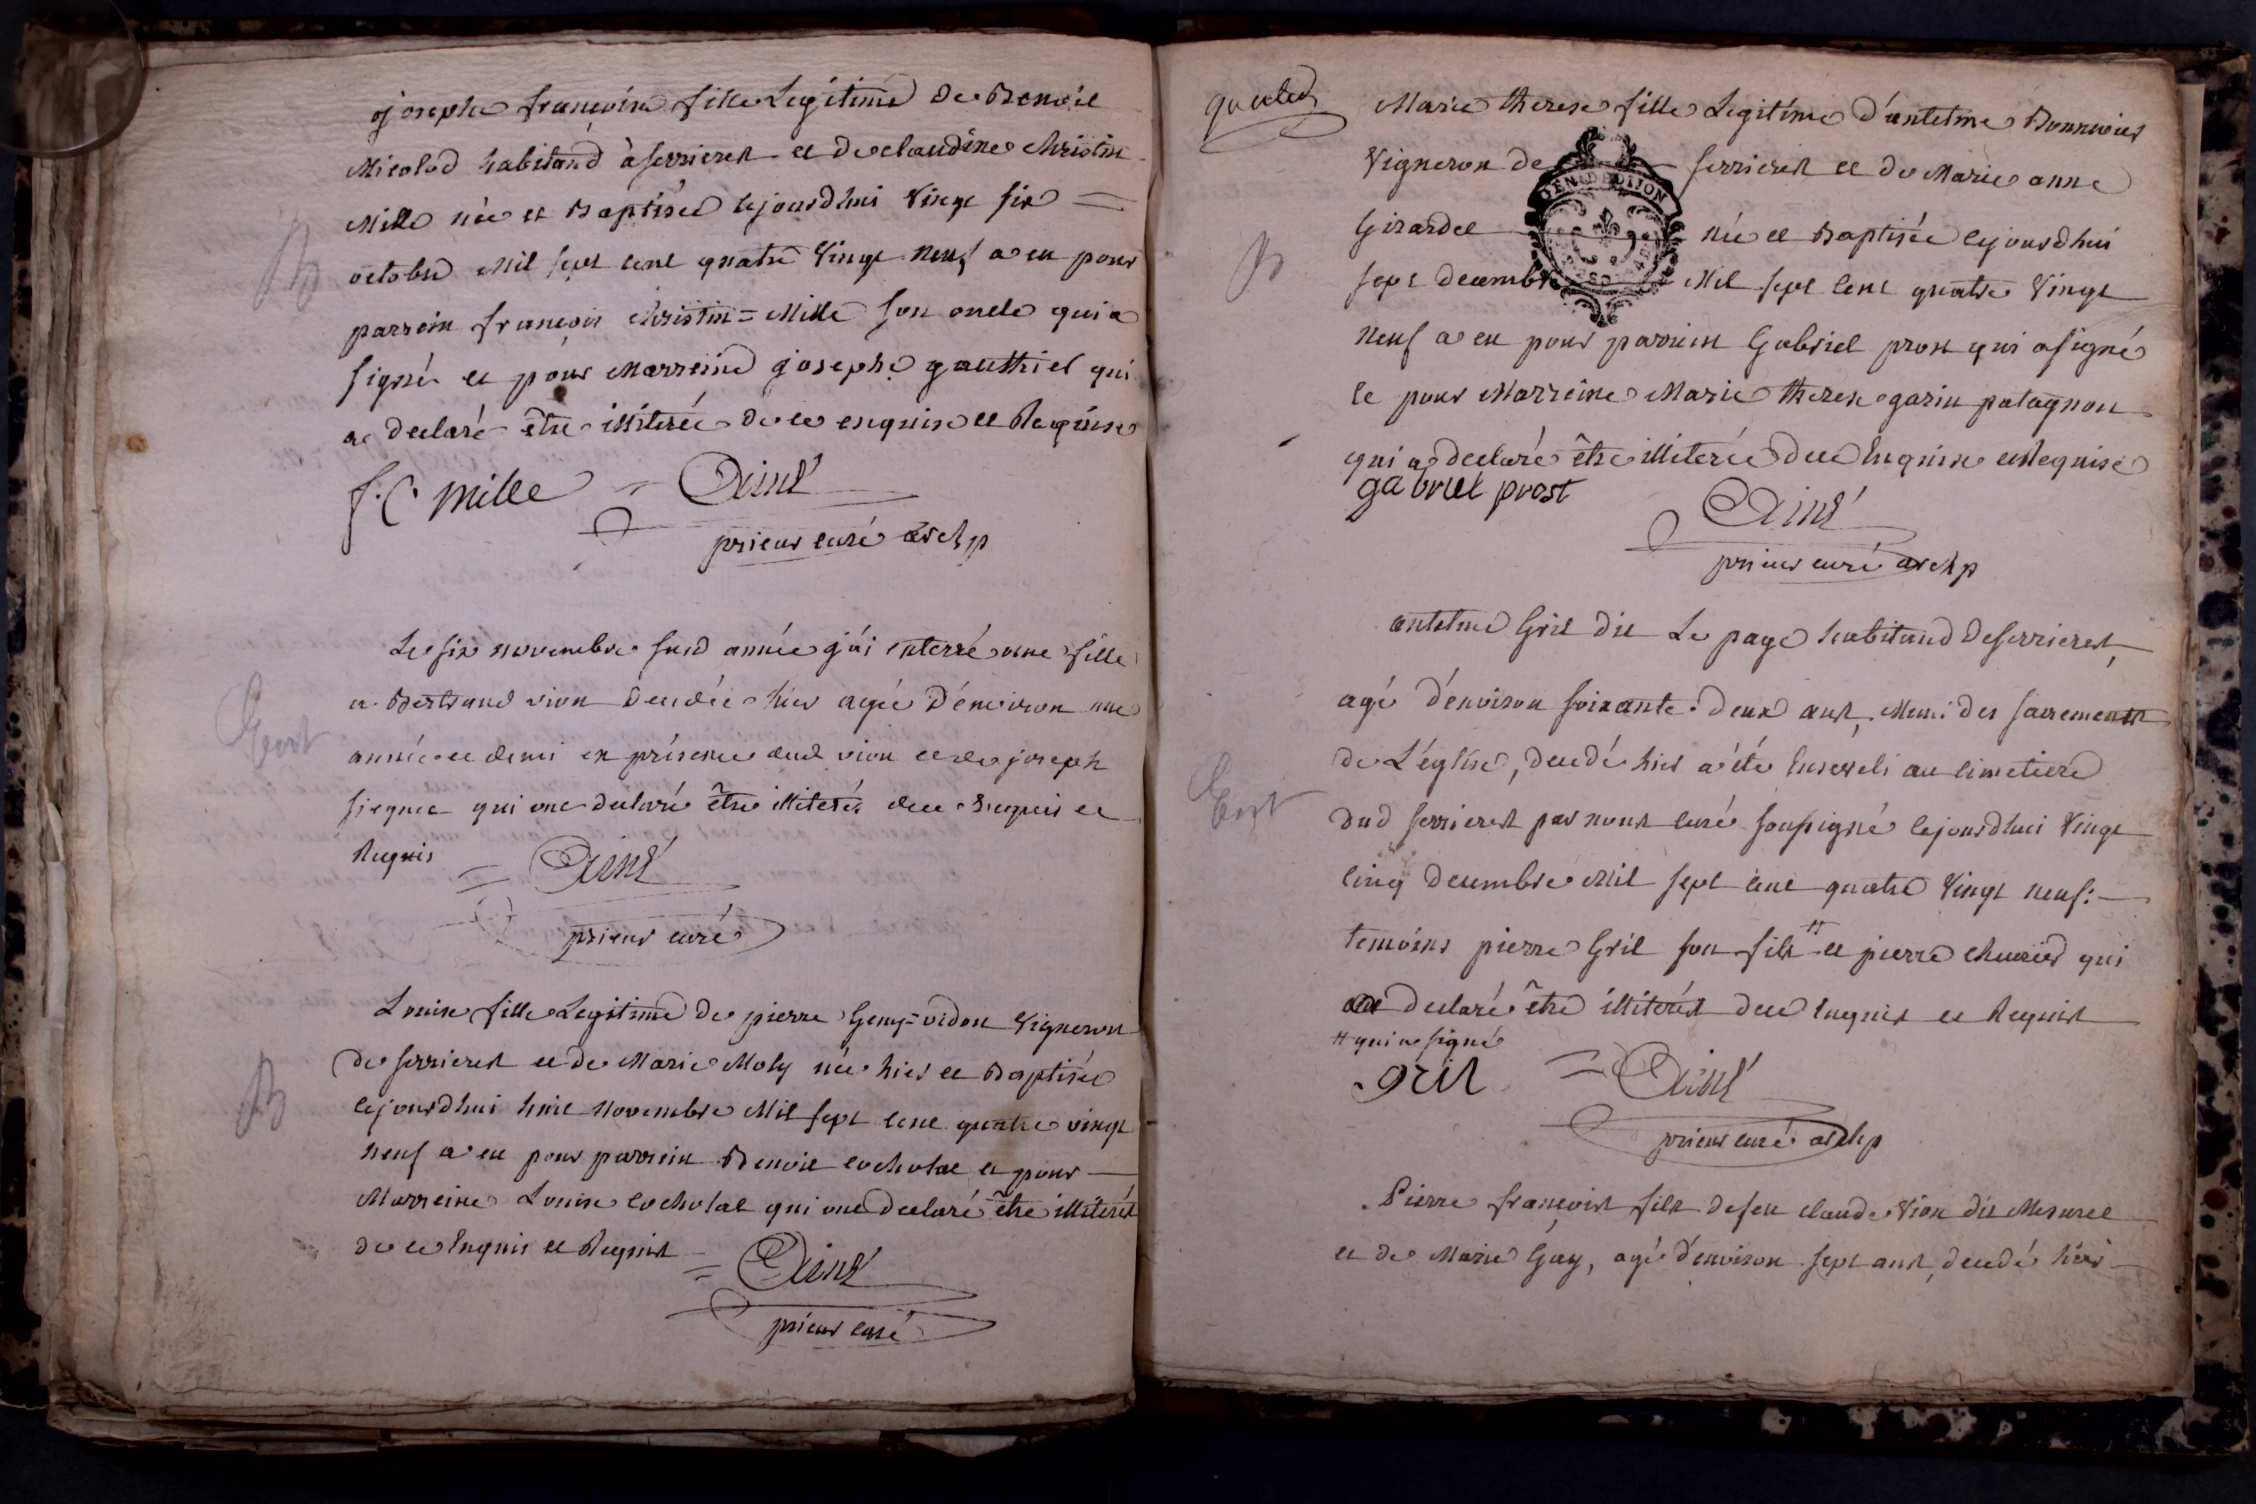 josephe françoise fille Legitime de Benoit
Nicolod habitand à serrieres et de claudine christin
Mille née et Baptisée cejourdhui Vingt six =
octobre Mil sept cent quatre Vingt neuf a eu pour
parrein françois christin = Mille son oncle qui a
signé et pour Marreine josephe gauthier qui
a declaré être illiterée de ce enquise et Requise
B
f. C. Mille = Aimé
prieur curé archp
Le six novembre susd année j'ai enterré une fille
a Bertrand vion decedée hier agée d'environ une
année et demi en présence dud vion et de joseph
qui ont declaré être illiterés de ce enquis et
Requis
= Aimé
prieur curé
Louise fille Legitime de pierre Geny = vidon Vigneron
de serrieres et de Marie Moly née hier et Baptisée
cejourdhui huit Novembre Mil sept cent quatre vingt
neuf a eu pour parrein Benoit cocholat et pour
Marreine Louise cocholat qui ont declaré être illiterés
de ce Enquis et Requis
B
= Aimé
prieur curé
Marie therese fille Legitime d'antelme
Vigneron de serrieres et de Marie anne
GEN DE DIJON
Girardet née et Baptisée cejourdhui
sept decembre Mil sept cent quatre Vingt
neuf a eu pour parrein Gabriel prost qui a signé
et pour Marreine Marie therese garin patagnon
qui a declaré être illiterée de ce Enquise et Requise
B
gabriel prost
Aimé
prieur curé archp
antelme Gril dit Le page habitand de serrieres,
agé d'environ soixante deux ans, Muni des sacrements
de L'église, decedé hier a été Enseveli au cimetiere
dud serrieres par nous curé soussigné cejourdhui Vingt
cinq decembre Mil sept cent quatre Vingt neuf: —
temoins pierre Gril son fils # et pierre qui
a declaré être illiterés de ce Enquis et Requis
# qui a signé
gril
= Aimé
prieur curé archp
Pierre françois fils de feu claude Vion dit
et de Marie Guy, agé d'environ sept ans, decedé hier